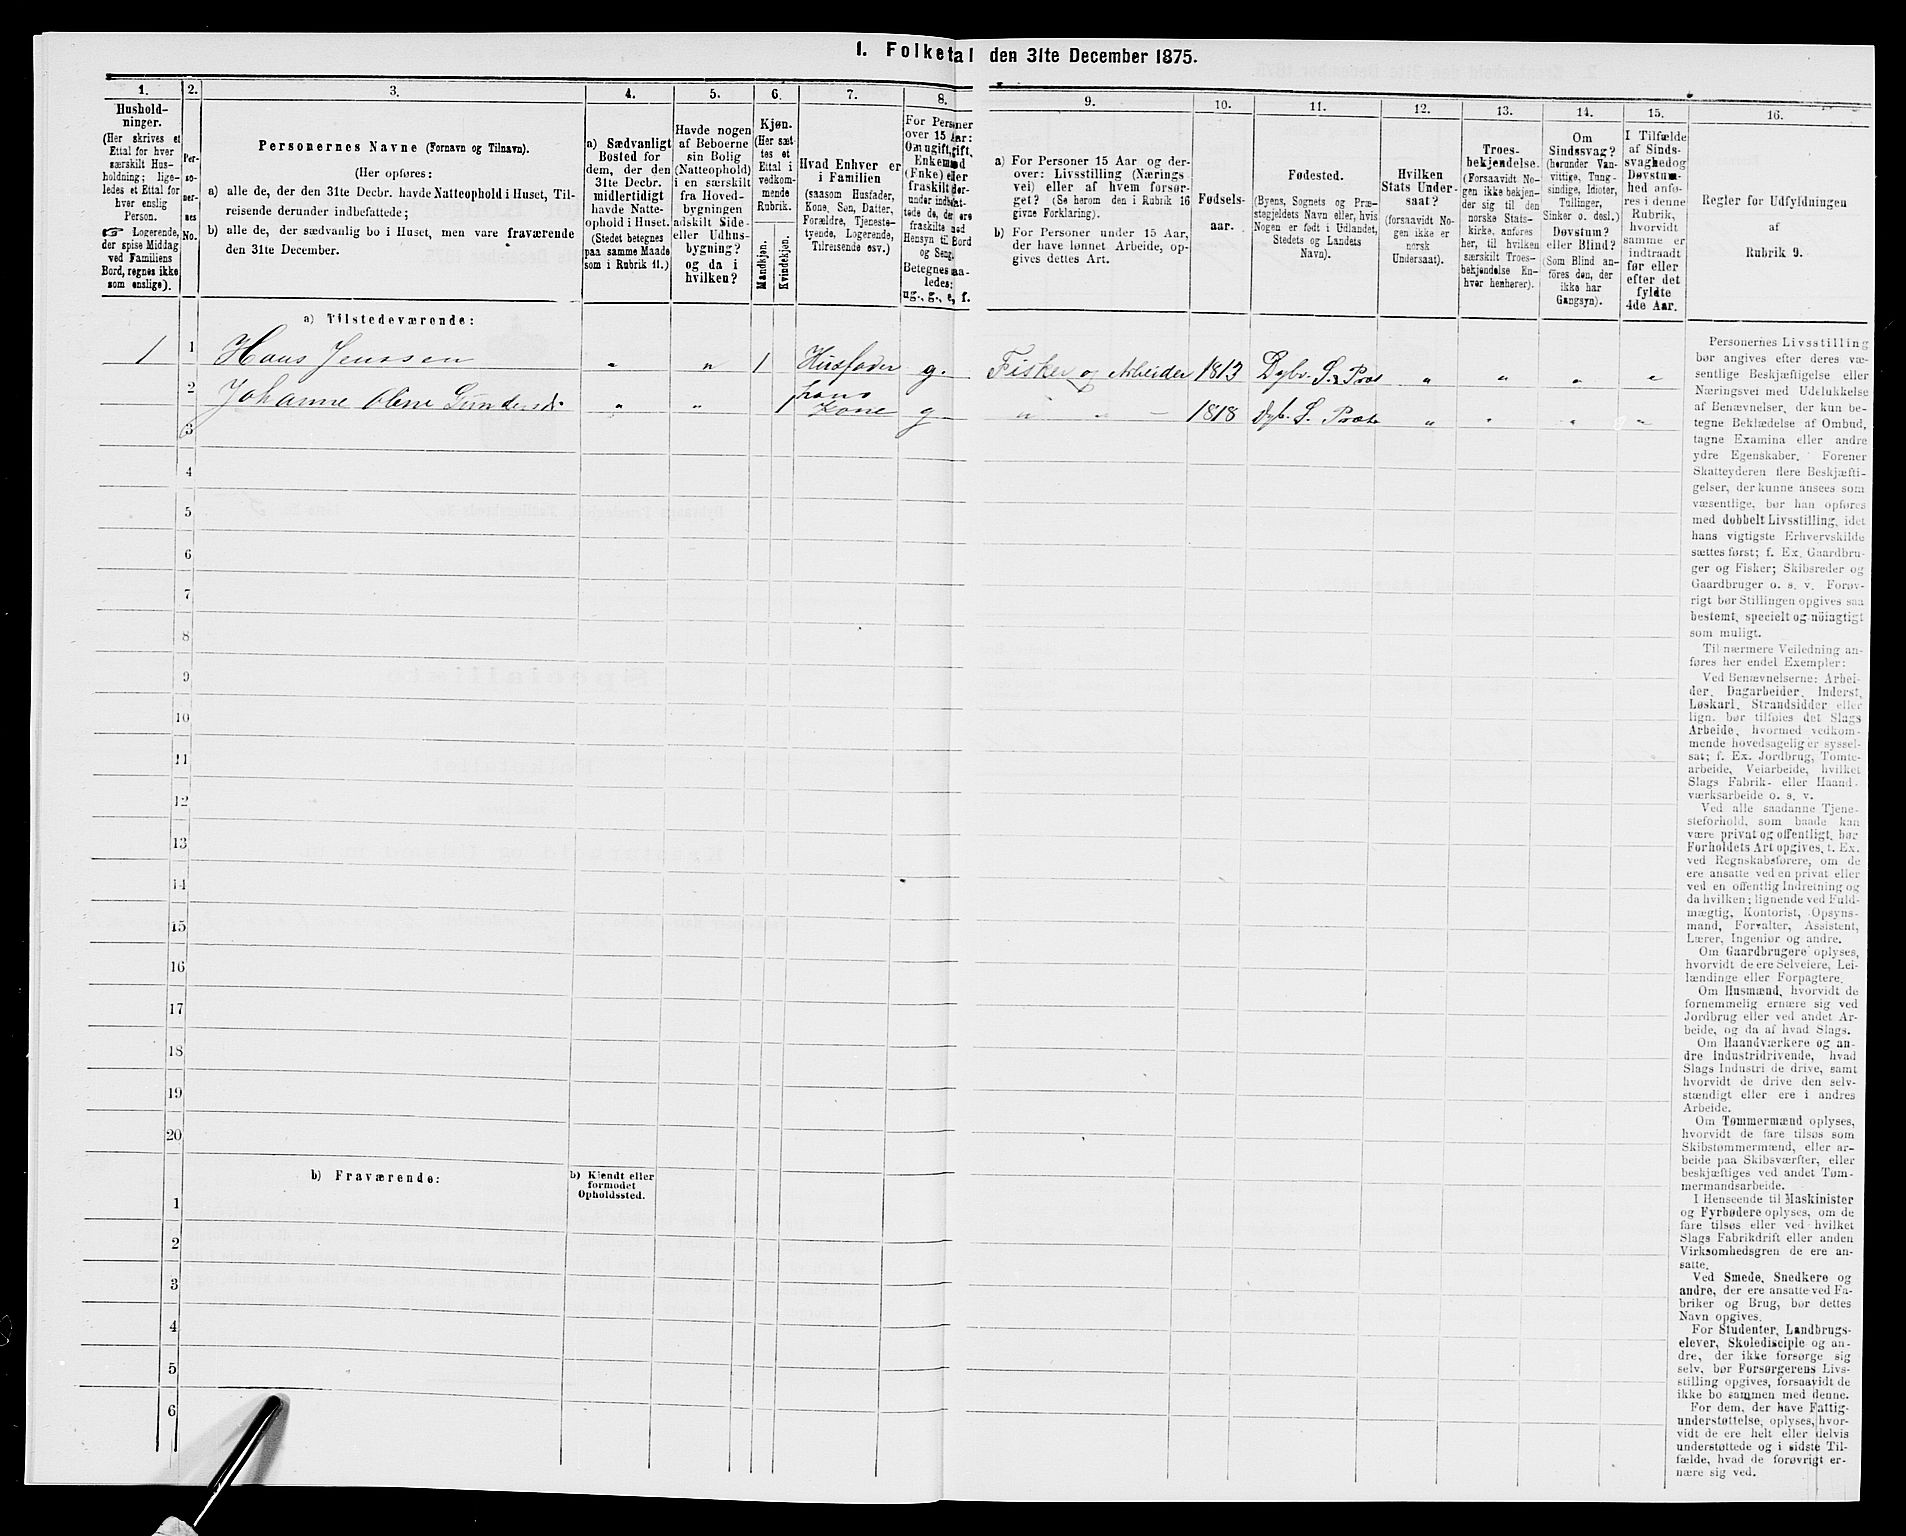 1. Folketal den 31te December 1875.
1.
Hushold-
ninger.
(Her skrives et
Ettal for hver
særskilt Hus-
holdning; lige-
ledes et Ettal for
hver enslig
Person.
☞ Logerende,
der spise Middag
ved Familiens
Bord, regnes ikke
som enslige).
2.
Per-
so-
ner-
nes
No.
3.
Personernes Navne (Fornavn og Tilnavn).
(Her opføres:
a) alle de, der den 31te Decbr. havde Natteophold i Huset, Til-
reisende derunder indbefattede;
b) alle de, der sædvanlig bo i Huset, men vare fraværende
den 31te December.
4.
a) Sædvanligt
Bosted for
dem, der den
31te Decbr.
midlertidigt
havde Natte-
ophold i Huset.
(Stedet betegnes
paa samme Maade
som i Rubrik 11.)
5.
Havde nogen
af Beboerne
sin Bolig
(Natteophold)
i en særskilt
fra Hoved-
bygningen
adskilt Side-
eller Udhus-
bygning?
og da i
hvilken?
6.
Kjøn.
(Her sæt-
tes et
Ettal i
vedkom-
mende
Rubrik.
Mandkjøn.
Kvindekjøn.
7.
Hvad Enhver er
i Familien
(saasom Husfader,
Kone, Søn, Datter,
Forældre, Tjeneste-
tyende, Logerende,
Tilreisende osv.)
8.
For Personer
over 15 Aar:
Om ugift, gift,
Enkemand
(Enke) eller
fraskilt der-
under indbefat-
tede de, der ere
fraskilte med
Hensyn til Bord
og Seng.
Betegnes saa-
ledes:
ug., g., e, f.
9.
a) For Personer 15 Aar og der-
over: Livsstilling (Nærings
vei) eller af hvem forsør-
get? (Se herom den i Rubrik 16
givne Forklaring).
b) For Personer under 15 Aar,
der have lønnet Arbeide, op-
gives dettes Art.
10.
Fødsels-
aar.
11.
Fødested.
(Byens, Sognets og Præ-
stegjeldets Navn eller, hvis
Nogen er født i Udlandet,
Stedets og Landets
Navn).
12.
Hvilken
Stats Under-
saat?
(forsaavidt No-
gen ikke er
norsk
Undersaat).
13.
Troes-
bekjendelse.
(Forsaavidt No-
gen ikke bekjen-
der sig til den
norske Stats-
kirke, anføres
her, til hvilken
særskilt Troes-
bekjendelse En-
hver henhører).
14.
Om
Sindssvag?
(herunder Van-
vittige, Tung-
sindige, Idioter,
Tullinger,
Sinker o. desl.)
Døvstum?
eller Blind?
(Som Blind an-
føres den, der
ikke har
Gangsyn).
15.
I Tilfælde
af Sinds-
svaghed og
Døvstum-
hed anfø-
res i denne
Rubrik,
hvorvidt
samme er
indtraadt
før eller
efter det
fyldte
4de Aar.
16.
Regler for Udfyldningen
af
Rubrik 9.
a) Tilstedeværende:
1 1 Hans Jenssen " " 1 Husfader g. Fisker og Arbeider 1813 Dybv. S. Præs " " " "
2 Johanne Olene Gundersd " " 1 hans Kone g " " 1818 Dyb. S. Præste " " " "
3
4
5
6
7
8
9
10
11
12
13
14
15
16
17
18
19
20
b) Fraværende:
b) Kjendt eller
formodet
Opholdssted.
1
2
3
4
5
6
Personernes Livsstilling
bør angives efter deres væ-
sentlige Beskjæftigelse eller
Næringsvei med Udelukkelse
af Benævnelser, der kun be-
tegne Beklædelse af Ombud,
tagne Examina eller andre
ydre Egenskaber. Forener
Skatteyderen flere Beskjæfti-
gelser, der kunne ansees som
væsentlige, bør han opføres
med dobbelt Livsstilling, idet
hans vigtigste Erhvervskilde
sættes først; f. Ex. Gaardbru-
ger og Fisker; Skibsreder og
Gaardbruger o. s. v. Forøv-
rigt bør Stillingen opgives saa
bestemt, specielt og nöiagtigt
som muligt.
Til nærmere Veiledning an-
føres her endel Exempler:
Ved Benævnelserne: Arbei-
der, Dagarbeider, Inderst,
Løskarl, Strandsidder eller
lign. bør tilføies det Slags
Arbeide, hvormed vedkom-
mende hovedsagelig er syssel-
sat; f. Ex. Jordbrug, Tomte-
arbeide, Veiarbeide, hvilket
Slags Fabrik- eller Haand-
værksarbeide o. s. v.
Ved alle saadanne Tjene-
steforhold, som baade kan
være privat og offentligt, bør
Forholdets Art opgives, t. Ex.
ved Regnskabsførere, om de
ere ansatte ved en privat eller
ved en offentlig Indretning og
da hvilken; lignende ved Fuld-
mægtig, Kontorist, Opsyns-
mand, Forvalter, Assistent,
Lærer, Ingeniør og andre.
Om Gaardbrugere oplyses,
hvorvidt de ere Selveiere, Lei-
lændinge eller Forpagtere.
Om Husmænd, hvorvidt de
fornemmelig ernære sig ved
Jordbrug eller ved andet Ar-
beide, og da af hvad Slags.
Om Haandværkere og an-
dre Industridrivende, hvad
Slags Industri de drive, samt
hvorvidt de drive den selv-
stændigt eller ere i andres
Arbeide.
Om Tømmermænd oplyses,
hvorvidt de fare tilsøs som
Skibstømmermænd, eller ar-
beide paa Skibsværfter, eller
beskjæftiges ved andet Tøm-
mermandsarbeide.
I Henseende til Maskinister
og Fyrbødere oplyses, om de
fare tilsøs eller ved hvilket
Slags Fabrikdrift eller anden
Virksomhedsgren de ere an-
satte.
Ved Smede, Snedkere og
andre, der ere ansatte ved Fa-
briker og Brug, bør dettes
Navn opgives.
For Studenter, Landbrugs-
elever, Skoledisciple og an-
dre, der ikke forsørge sig
selv, bør Forsørgerens Livs-
stilling opgives, forsaavidt de
ikke bo sammen med denne.
For dem, der have Fattig-
understøttelse, oplyses, hvor-
vidt de ere helt eller delvis
understøttede og i sidste Til-
fælde, hvad de forøvrigt er-
nære sig ved.